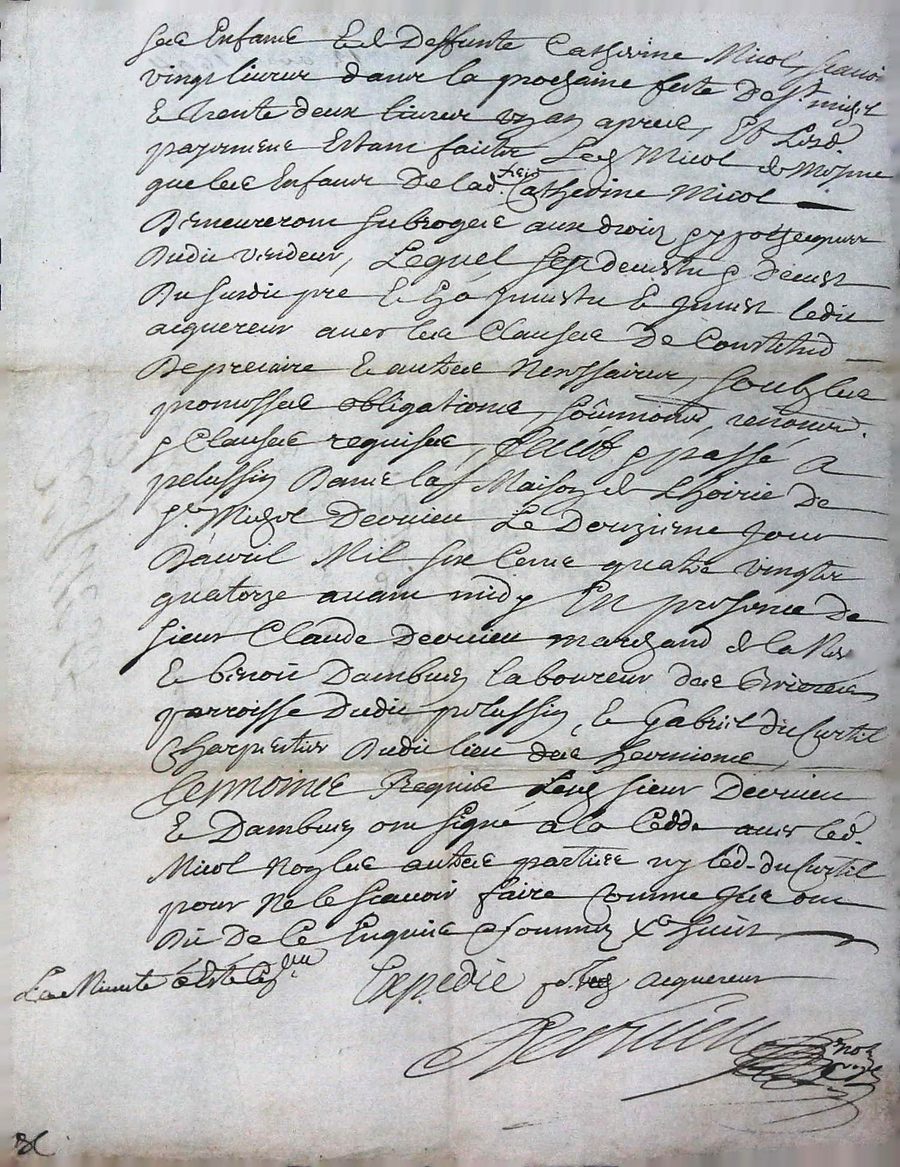 ses Enfans Et de Deffunte Catherine Micol, scavoir
vingt livres dans la prochaine feste De st michel
Et trente deux livres un an apres, Et Lesd
payemens Estant faits Led Micol de mesme
que les Enfans De lad. Catherine Micol
Demeureront subrogés aux droits hypotheques
Dudit vendeur, Lequel s'est devestu
Du susdit pré Et En a investu Et ledit
acquereur avec les Clauses De Constitut
De precaire Et autres Necessaires, soubz les
promesses obligations, soumons, renons.
Clauses requises, faict & passé a
pelussin Dans la Maison de Lhoirie De
Michel Dervieu Le Douzieme jour
Davril Mil six Cens quatre vingts
quatorze avant midy En presence De
sieur Claude Dervieu marchand de la
Et benoit Dambuis laboureur des
parroisse Dudit pelussin, Et Gabriel du Curtil
Charpentier Dudit lieu des
Tesmoins Requis Lesd sieur Dervieu
Et Dambuis ont signé a la Cedde avec led.
Micol Non les autres parties ny led. du Curtil
pour Ne le scavoir faire Comme Ils ont
Dit De Ce Enquis & sommés
La Minute
Expedié pour led acquereur
Dervieu